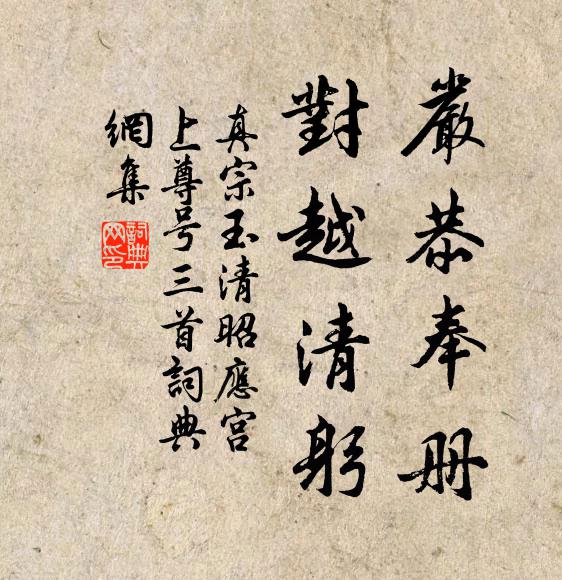 嚴恭奉册
對越清躬
真宗玉清昭應宫
上尊号三首詞典
網集
詞典
网印